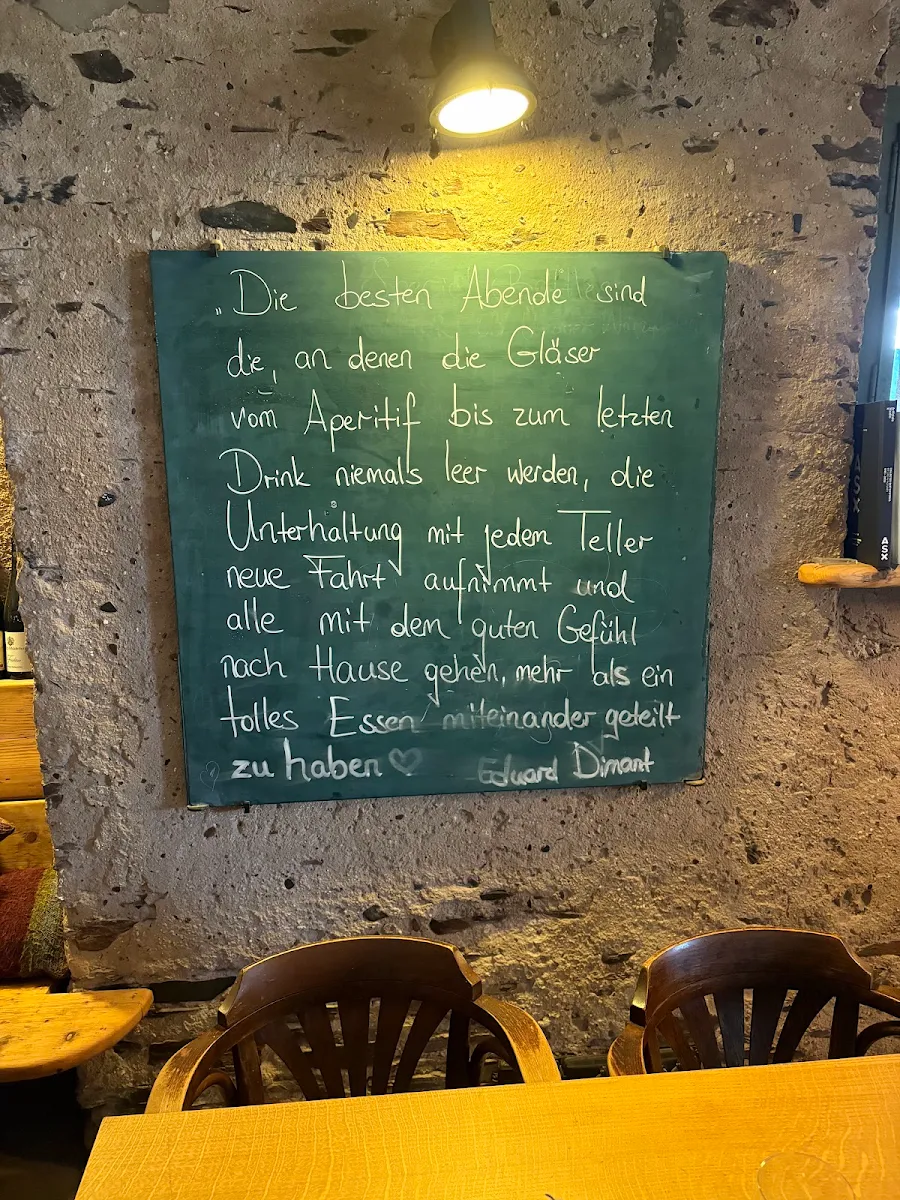 „Die besten Abende sind
die, an denen die Gläser
vom Aperitif bis zum letzten
Drink niemals leer werden, die
Unterhaltung mit jedem Teller
neue Fahrt aufnimmt und
alle mit dem guten Gefühl
nach Hause gehen, mehr als ein
tolles Essen miteinander geteilt
zu haben ♡ Eduard Dimant
ASX
ASX